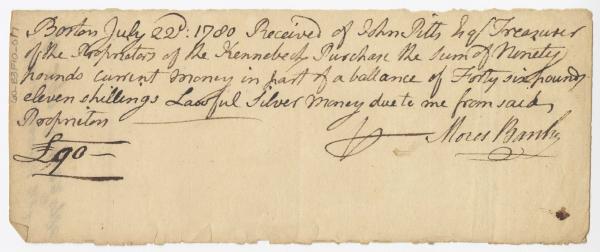 Boston July 22d: 1780 Received of John Pitts Esqr Treasurer
of the Proprietors of the Kennebeck Purchase the sum of Ninety
pounds current money in part of a ballance of Forty six pounds
eleven shillings Lawful Silver money due to me from said
Proprietors
Moses Banks
£90—